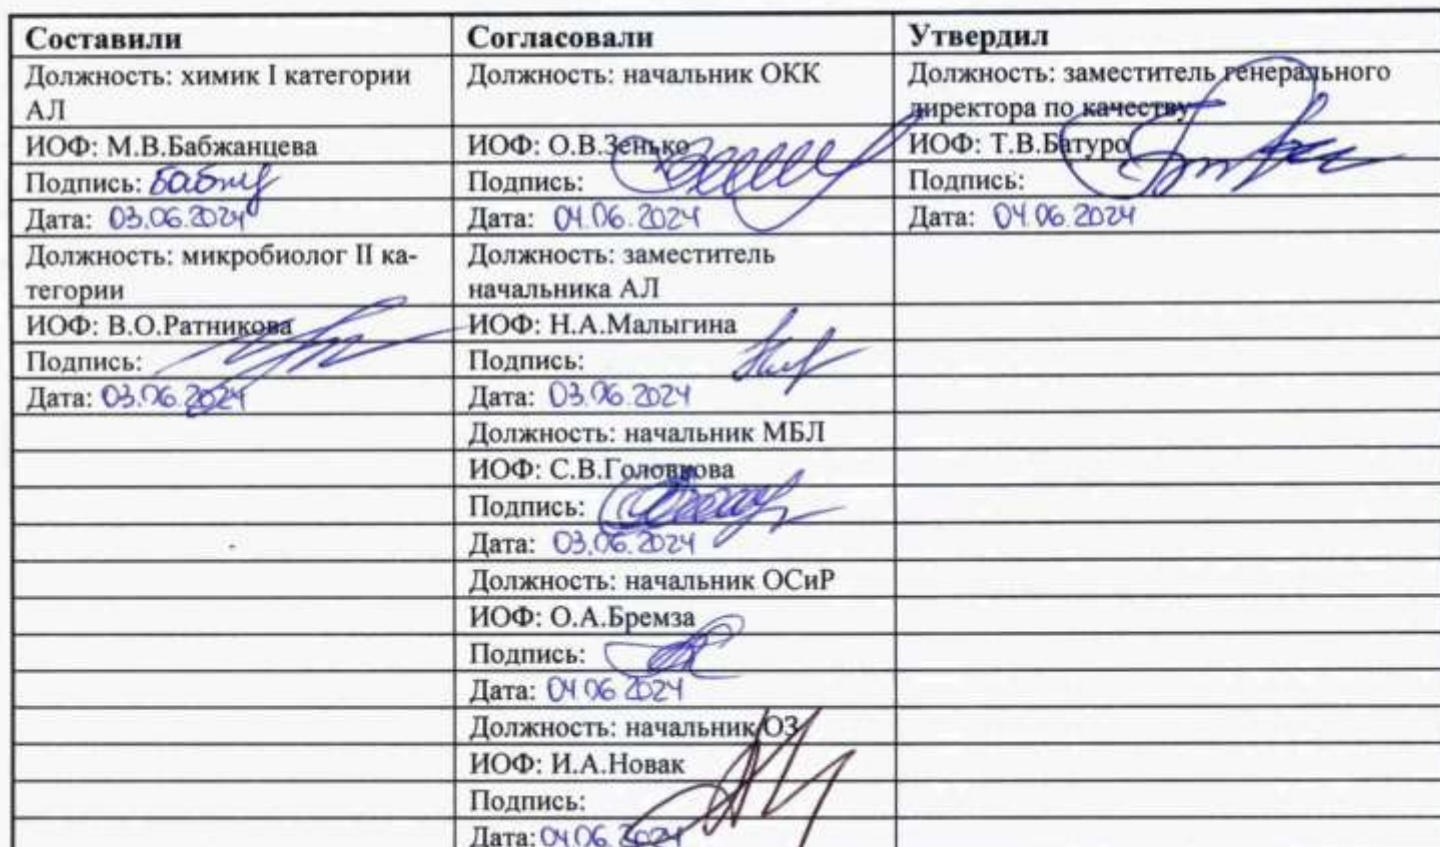 Составили Согласовали Утвердил
Должность: химик I категории Должность: начальник ОКК Должность: заместитель генерального
АЛ директора по качеству
ИОФ: М.В.Бабжанцева ИОФ: О.В.Зенько ИОФ: Т.В.Батуро
Подпись: Подпись: Подпись:
Дата: 03.06.2024 Дата: 04.06.2024 Дата: 04.06.2024
Должность: микробиолог II ка- Должность: заместитель
тегории начальника АЛ
ИОФ: В.О.Ратникова ИОФ: Н.А.Малыгина
Подпись: Подпись:
Дата: 03.06.2024 Дата: 03.06.2024
Должность: начальник МБЛ
ИОФ: С.В.Головкова
Подпись:
Дата: 03.06.2024
Должность: начальник ОСиР
ИОФ: О.А.Бремза
Подпись:
Дата: 04.06.2024
Должность: начальник ОЗ
ИОФ: И.А.Новак
Подпись:
Дата: 04.06.2024